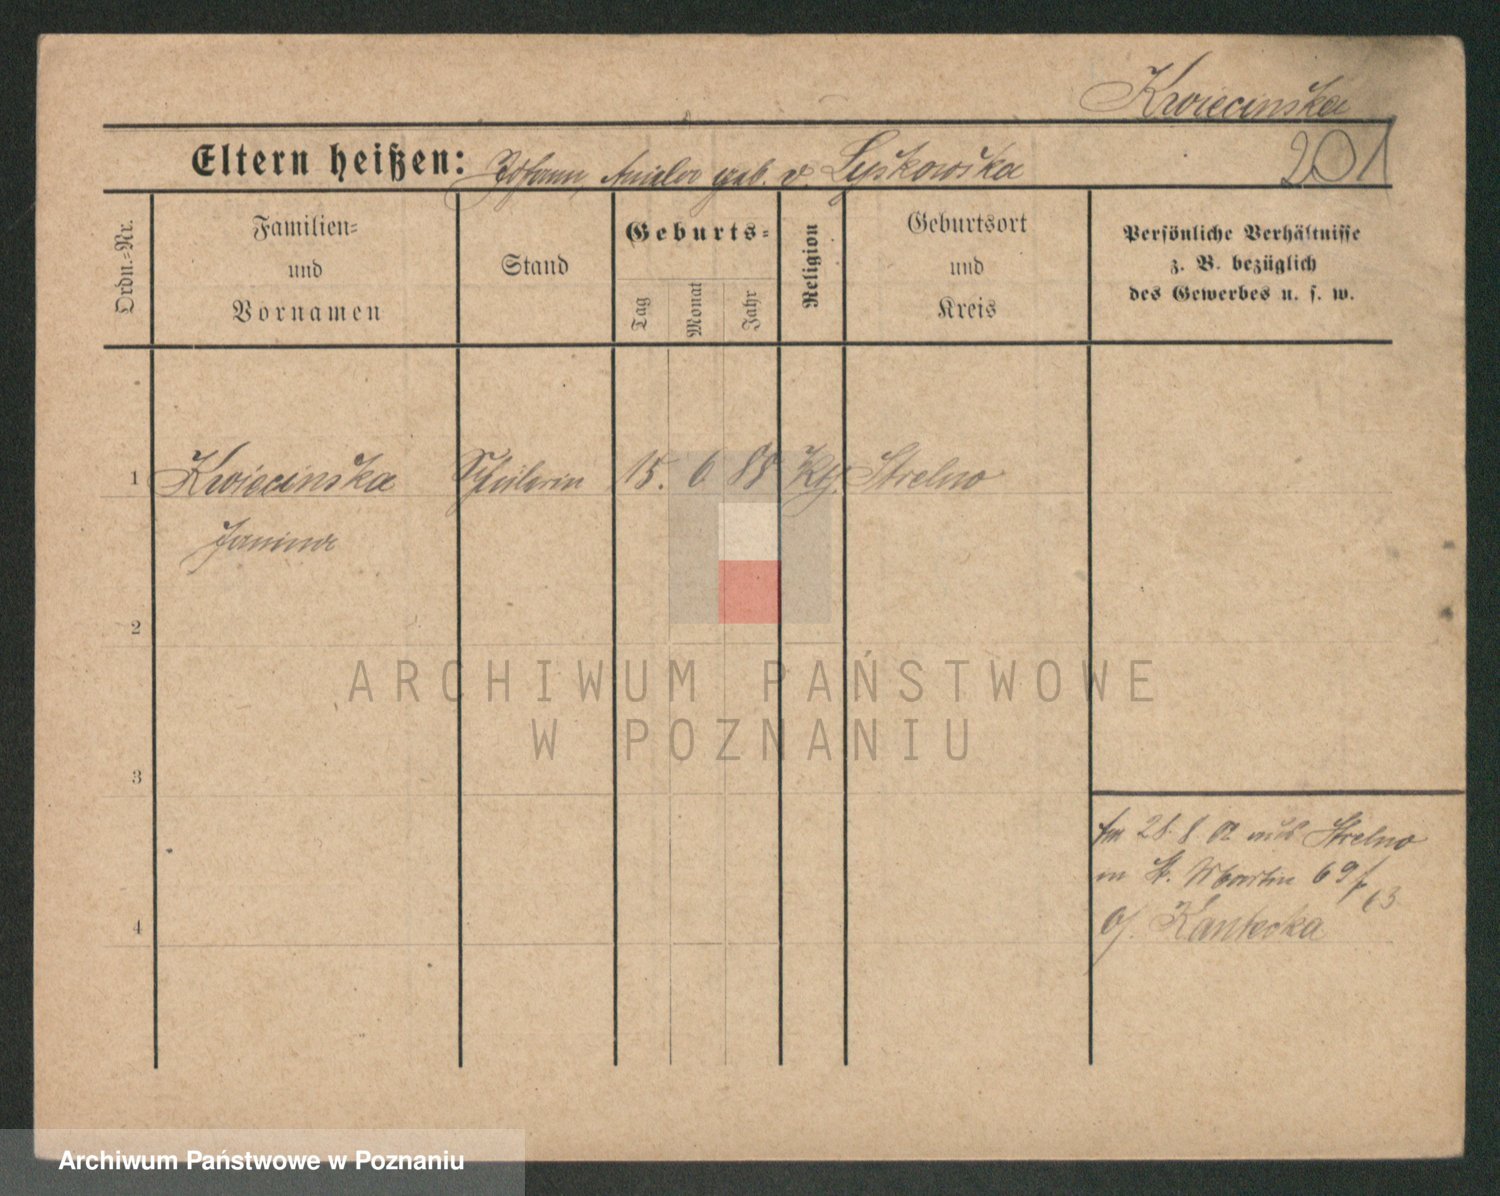 Kwiecinska
Eltern heißen: Johann, Aniela geb. v. Lyskowska
201
Ordn.=Nr.
Familien=
und
Vornamen
Stand
Geburts=
Tag
Monat
Jahr
Religion
Geburtsort
und
Kreis
Persönliche Verhältnisse
z. B. bezüglich
des Gewerbes u. s. w.
1 Kwiecinska Schülerin 15. 6 88 Kth. Strelno
Janina
2
3
4
28. 8. 02 aus Strelno
St. Martin 69
b/. Kantecka
ARCHIWUM PAŃSTWOWE
W POZNANIU
Archiwum Państwowe w Poznaniu